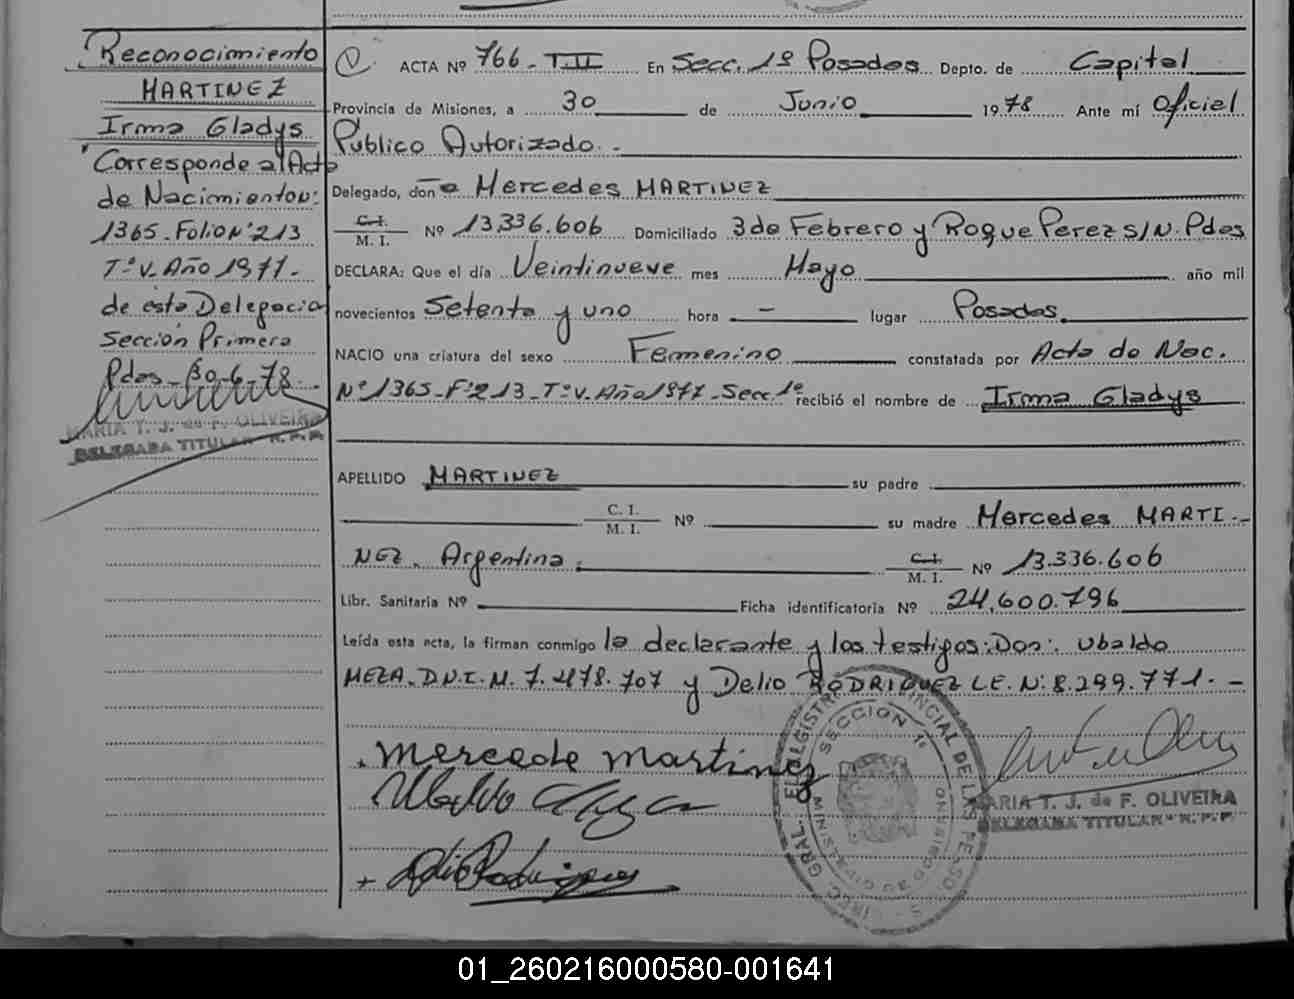 Reconocimiento
MARTINEZ
Irma Gladys
Corresponde al Acta
de Nacimiento Nº:
1365-Folio Nº 213
Tº V. Año 1977-
de esta Delegacion
Sección Primera
Pdas-30-6-78.
MARIA T. J. de F. OLIVEIRA
DELEGADA TITULAR R.P.P.
ACTA Nº 766-T II En Secc. 1º Posadas Depto. de Capital
Provincia de Misiones, a 30 de Junio 1978 Ante mí Oficial
Publico Autorizado.-
Delegado, don a Mercedes MARTINEZ
C. I.
M. I. Nº 13.336.606 Domiciliado 3 de Febrero y Roque Perez S/N. Pdas
DECLARA: Que el día Veintinueve mes Mayo año mil
novecientos Setenta y uno hora - lugar Posadas.
NACIO una criatura del sexo Femenino constatada por Acta de Nac.
Nº 1365-Fº 213-Tº V. Año 1977-Secc. 1º recibió el nombre de Irma Gladys
APELLIDO MARTINEZ su padre
C. I.
M. I. Nº su madre Mercedes MARTI.-
NEZ. Argentina. C. I.
M. I. Nº 13.336.606
Libr. Sanitaria Nº Ficha identificatoria Nº 24,600.796
Leída esta acta, la firman conmigo la declarante y los testigos: Don: Ubaldo
MEZA. D.N.I. M. 7.478.707 y Delio RODRIGUEZ L.E. Nº: 8.299.771.-
mercede martinez
SECCION 1º
MARIA T. J. de F. OLIVEIRA
DELEGADA TITULAR R.P.P.
01_260216000580-001641